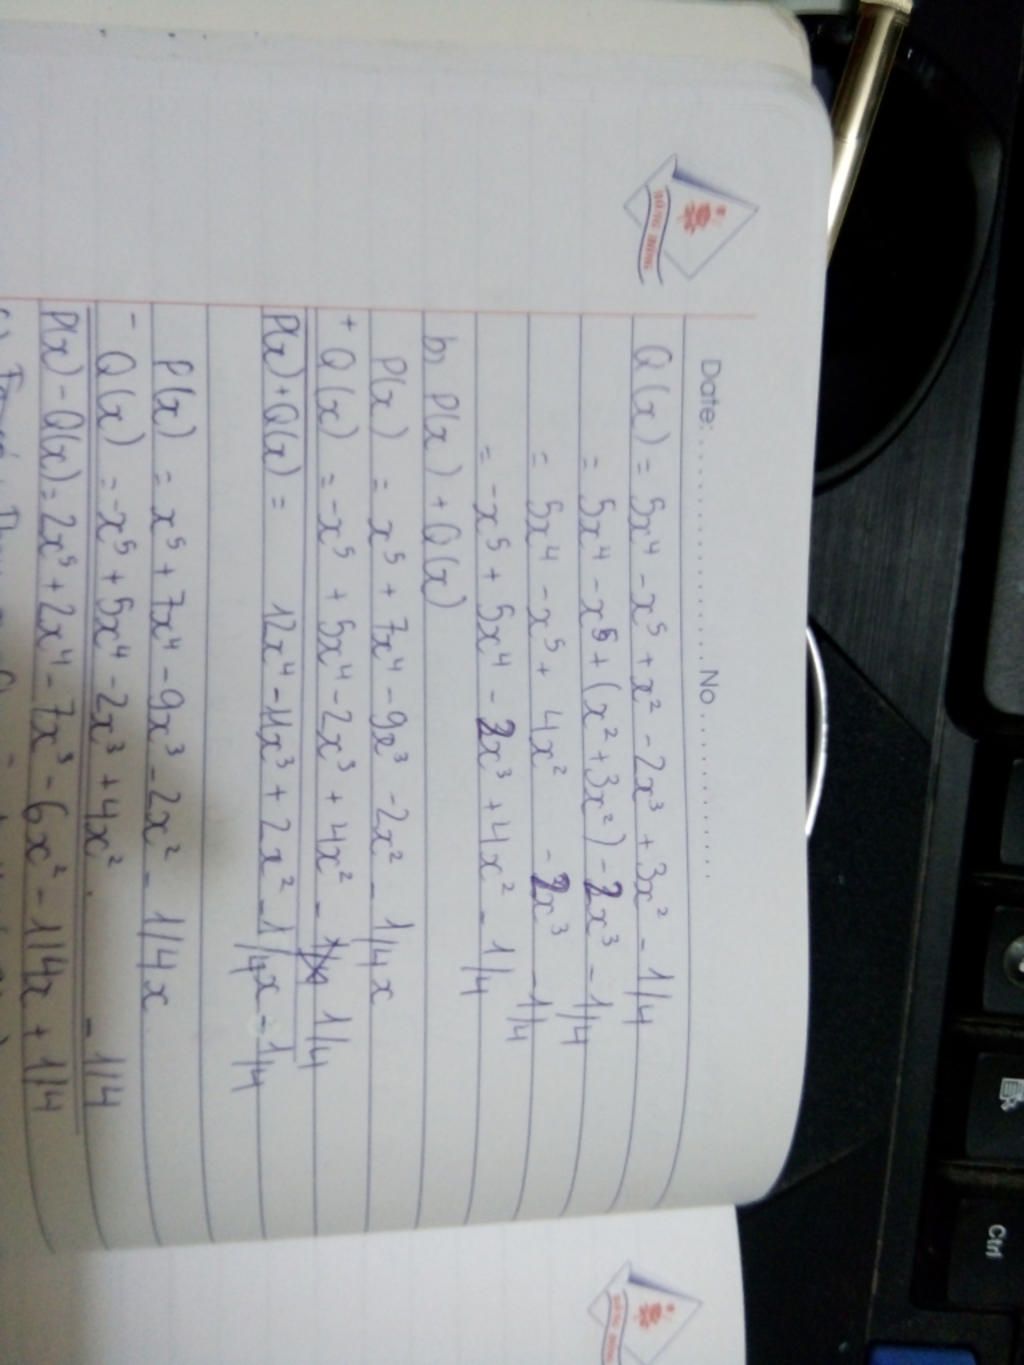 Date: No
Q(x) = 5x⁴ - x⁵ + x² - 2x³ + 3x² - 1/4
= 5x⁴ - x⁵ + (x² + 3x²) - 2x³ - 1/4
= 5x⁴ - x⁵ + 4x² - 2x³ - 1/4
= -x⁵ + 5x⁴ - 2x³ + 4x² - 1/4
b) P(x) + Q(x)
P(x) = x⁵ + 7x⁴ - 9x³ - 2x² - 1/4x
+ Q(x) = -x⁵ + 5x⁴ - 2x³ + 4x² - 1/4
P(x) + Q(x) = 12x⁴ - 11x³ + 2x² - 1/4x - 1/4
P(x) = x⁵ + 7x⁴ - 9x³ - 2x² - 1/4x
- Q(x) = -x⁵ + 5x⁴ - 2x³ + 4x² - 1/4
P(x) - Q(x) = 2x⁵ + 2x⁴ - 7x³ - 6x² - 1/4x + 1/4
Ctrl